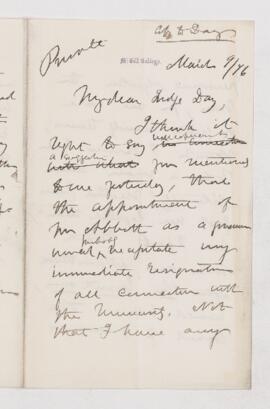 Cfy to Day
Private
McGill College,
March 9/76
My dear Judge Day,
I think it
right to say with reference to
a suggestion you mentioned
to me yesterday, that
the appointment of
Mr Abbott as a governor
would, probably necessitate my
immediate resignation
of all connection with
the University. Not
that I have any